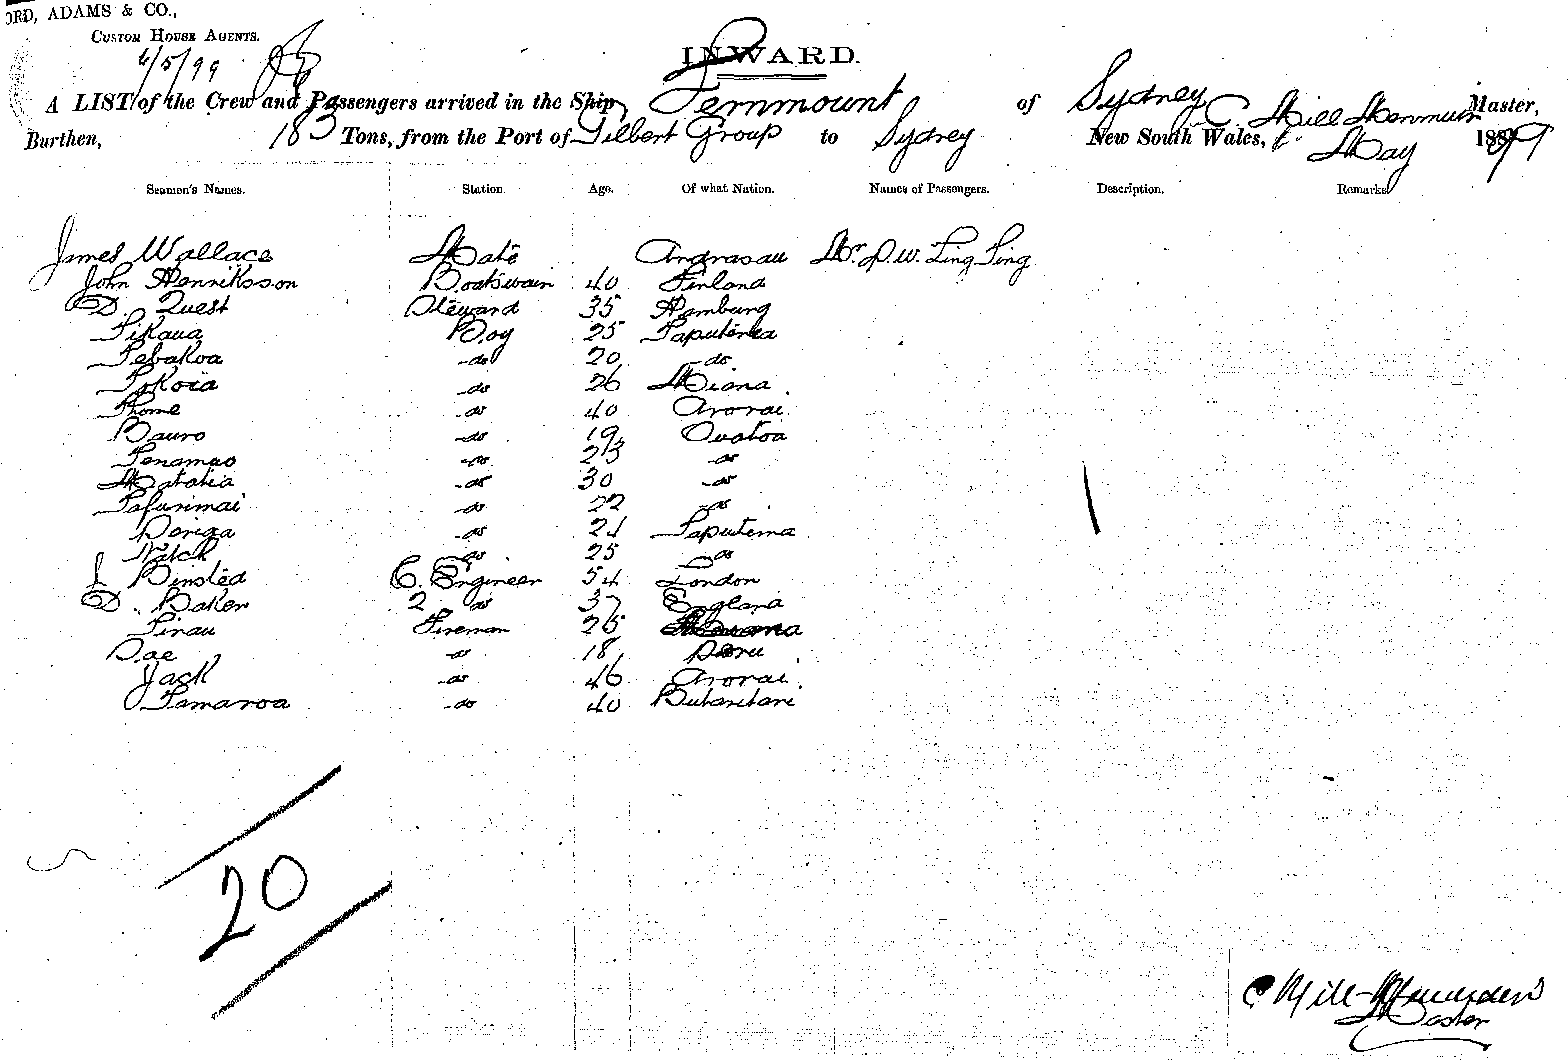 ORD, ADAMS & CO.,
CUSTOM HOUSE AGENTS.
6/5/99
INWARD.
A LIST of the Crew and Passengers arrived in the Ship Fernmount of Sydney C. Mill Master,
Burthen, 183 Tons, from the Port of Gilbert Group to Sydney New South Wales, 6 May 1899
Seamen's Names. Station. Age. Of what Nation. Names of Passengers. Description. Remarks
James Wallace Mate Mr. D. W. Ling Sing
John Henriksson Boatswain 40 Finland
D. Quest Steward 35 Hamburg
Tikaua Boy 25 Taputenea
Tebakoa do 20 do
Tokoia do 26 Miana
Thome do 40 Arorai
Bauro do 19 Ouatoa
Tenamao do 23 do
Matatia do 30 do
Tafurimai do 22 do
Doriga do 24 Taputema
Natch do 25 do
J Binsted C. Engineer 54 London
D. Baker 2 do 37 England
Tirau Fireman 25
Dae do 18 Peru
Jack do 46 Arorai
Tamaroa do 40 Butaritari
20
C Mill
Master